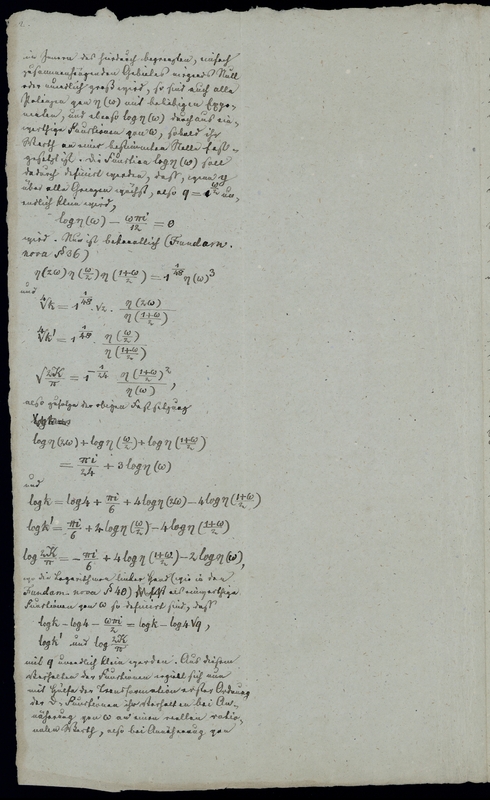 1.
im Innern des hierdurch begrenzten, einfach
zusammenhängenden Gebietes nirgends Null
oder unendlich groß wird, so sind auch alle
Potenzen von η(ω) mit beliebigen Expo-
nenten, und ebenso log η(ω) durchaus ein-
werthige Functionen von ω, sobald ihr
Werth an einer bestimmten Stelle fest-
gesetzt ist. Die Function log η(ω) soll
dadurch definirt werden, dass, wenn y
über alle Grenzen wächst, also q = 1^{ω/2} un-
endlich klein wird,
log η(ω) − ωπi/12 = 0
wird. Nun ist bekanntlich (Fundam.
nova § 36)
η(2ω) η(ω/2) η((1+ω)/2) = 1^{1/48} η(ω)^3
und
∜k = 1^{1/48} · √2 · η(2ω) / η((1+ω)/2)
∜k' = 1^{1/48} · η(ω/2) / η((1+ω)/2)
√(2K/π) = 1^{−1/24} η((1+ω)/2)^2 / η(ω),
also zufolge der obigen Festsetzung
log η(2ω) + log η(ω/2) + log η((1+ω)/2)
= πi/24 + 3 log η(ω)
und
log k = log 4 + πi/6 + 4 log η(2ω) − 4 log η((1+ω)/2)
log k' = πi/6 + 4 log η(ω/2) − 4 log η((1+ω)/2)
log 2K/π = − πi/6 + 4 log η((1+ω)/2) − 2 log η(ω),
wo die Logarithmen linker Hand (wie in den
Fundam. nova § 40) als einwerthige
Functionen von ω so definirt sind, dass
log k − log 4 − ωπi/2 = log k − log 4√q,
log k' und log 2K/π
mit q unendlich klein werden. Aus diesem
Verhalten der Functionen ergiebt sich nun
mit Hülfe der Transformation erster Ordnung
der ϑ-Functionen ihr Verhalten bei An-
näherung von ω an einen reellen ratio-
nalen Werth, also bei Annäherung von